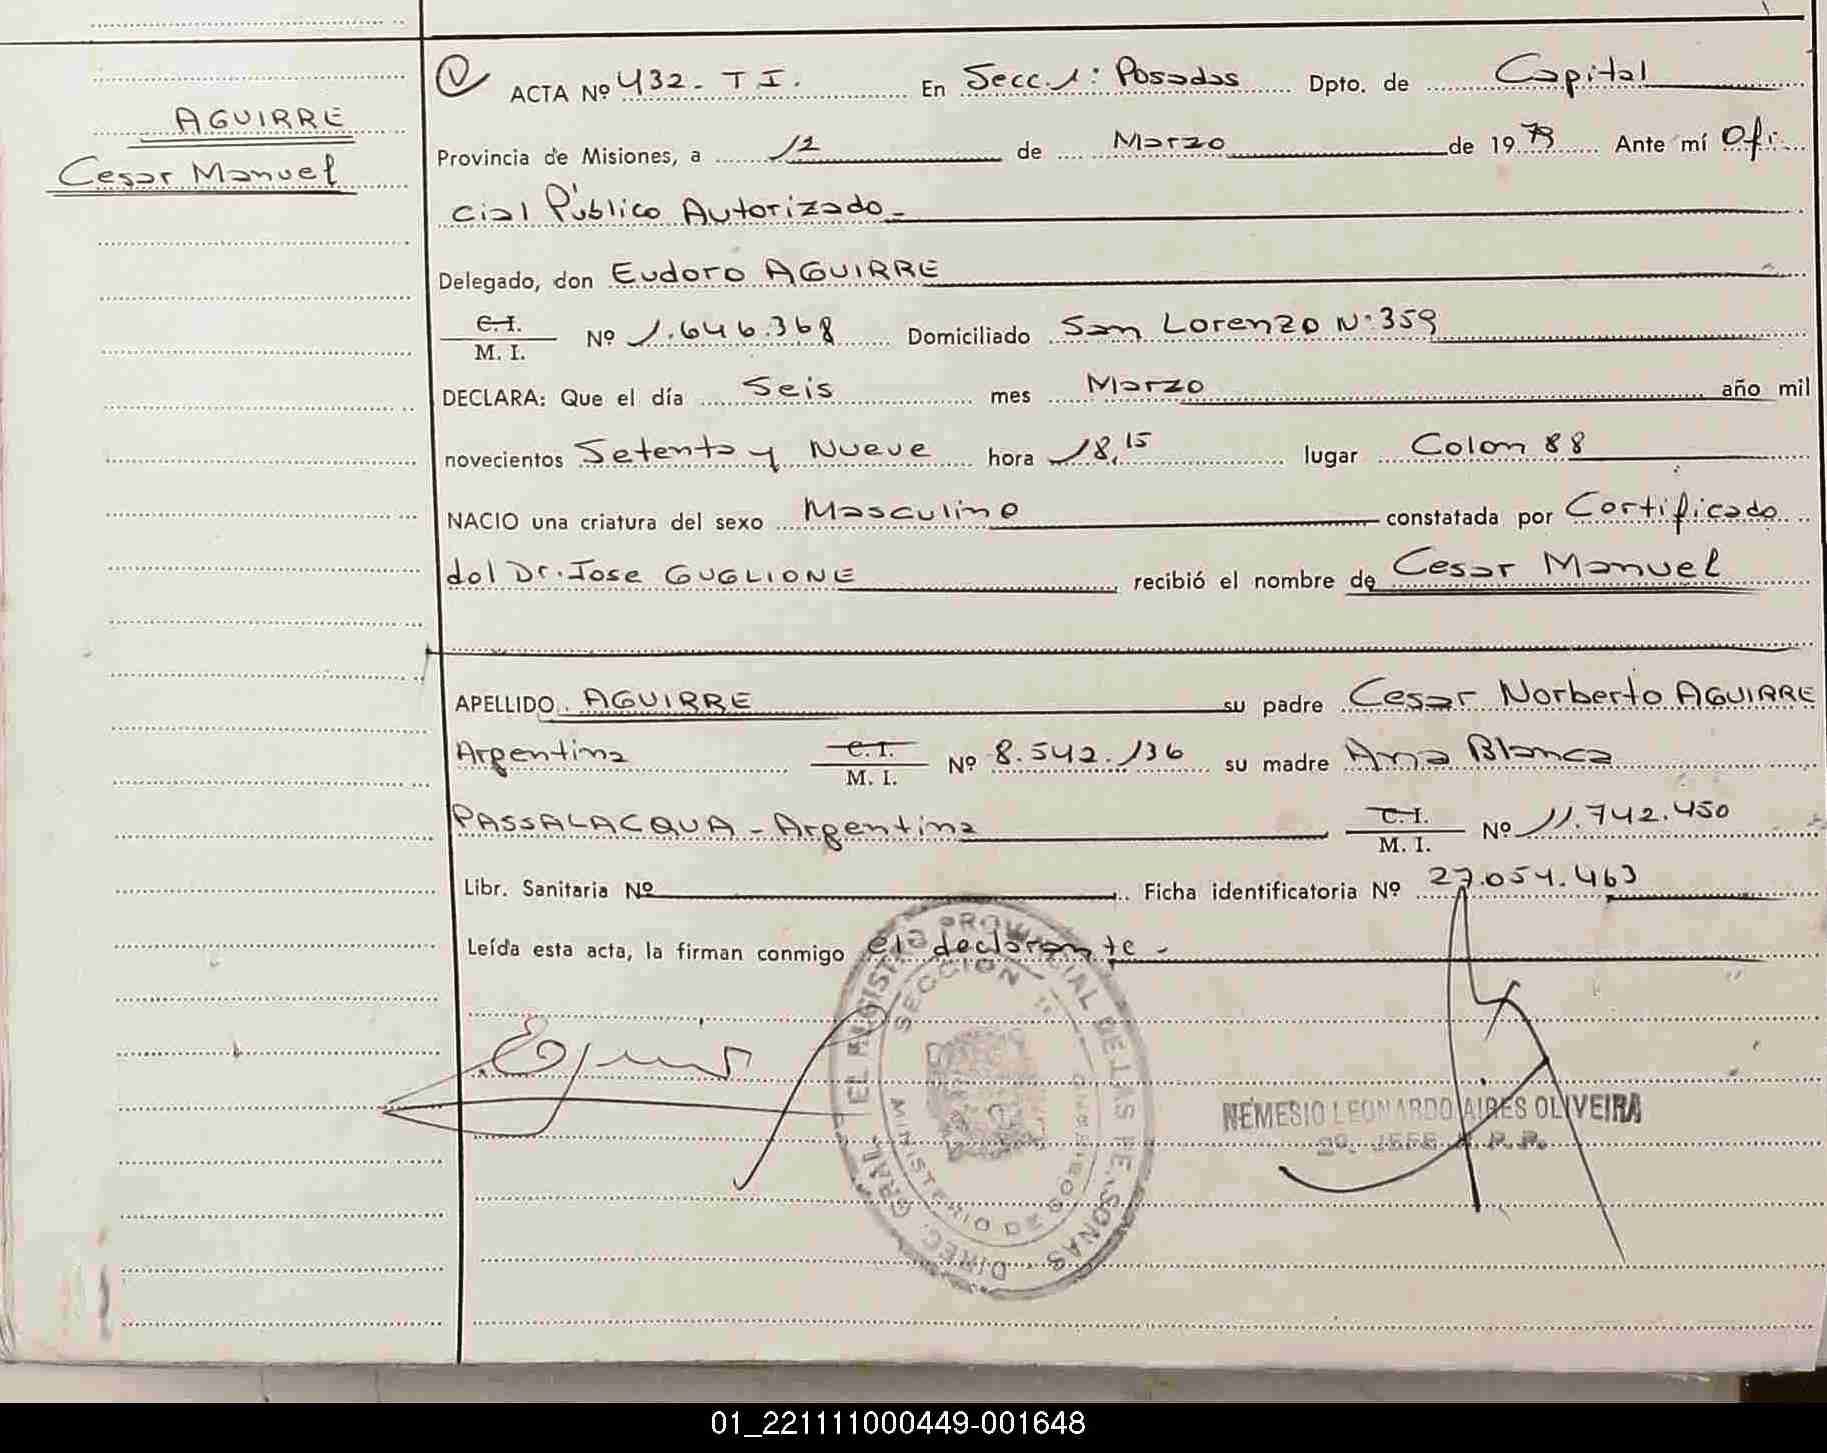 AGUIRRE
Cesar Manuel
ACTA Nº 432 - T I. En Secc. 1: Posadas Dpto. de Capital
Provincia de Misiones, a 12 de Marzo de 1979 Ante mí Ofi
cial Público Autorizado -
Delegado, don Eudoro AGUIRRE
C. I.
M. I. Nº 1.646.368 Domiciliado San Lorenzo Nº 359
DECLARA: Que el día Seis mes Marzo año mil
novecientos Setenta y Nueve hora 18,15 lugar Colon 88
NACIO una criatura del sexo Masculino constatada por Certificado
del Dr. Jose GUGLIONE recibió el nombre de Cesar Manuel
APELLIDO AGUIRRE su padre Cesar Norberto AGUIRRE
Argentina C. I. M. I. Nº 8.542.136 su madre Ana Blanca
PASSALACQUA - Argentina C. I. M. I. Nº 11.742.450
Libr. Sanitaria Nº Ficha identificatoria Nº 27.054.463
Leída esta acta, la firman conmigo el declarante -
DIREC. GRAL. DEL REGISTRO PROVINCIAL DE LAS PERSONAS
SECCION 1º
MINISTERIO DE GOBIERNO
NEMESIO LEONARDO AIRES OLIVEIRA
2º. JEFE R. P. P.
01_221111000449-001648